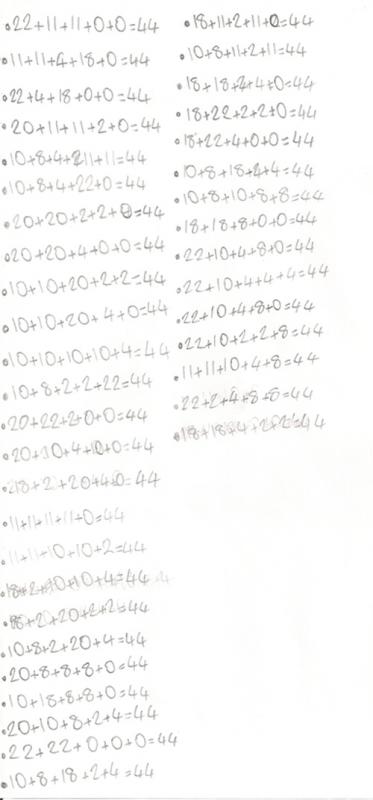 •22+11+11+0+0=44
•11+11+4+18+0=44
•22+4+18+0+0=44
•20+11+11+2+0=44
•10+8+4+11+11=44
•10+8+4+22+0=44
•20+20+2+2+0=44
•20+20+4+0+0=44
•10+10+20+2+2=44
•10+10+20+4+0=44
•10+10+10+10+4=44
•10+8+2+2+22=44
•20+22+2+0+0=44
•20+10+4+10+0=44
•18+2+20+4+0=44
•11+11+11+11+0=44
•11+11+10+10+2=44
•18+2+10+10+4=44
•18+2+20+2+2=44
•10+8+2+20+4=44
•20+8+8+8+0=44
•10+18+8+8+0=44
•20+10+8+2+4=44
•22+22+0+0+0=44
•10+8+18+2+4=44
•18+11+2+11+0=44
•10+8+11+2+11=44
•18+18+2+4+0=44
•18+22+2+2+0=44
•18+22+4+0+0=44
•10+8+18+2+4=44
•10+8+10+8+8=44
•18+18+8+0+0=44
•22+10+4+8+0=44
•22+10+4+4+4=44
•22+10+4+8+0=44
•22+10+2+2+8=44
•11+11+10+4+8=44
•22+2+4+8+8=44
•18+18+4+2+2=44